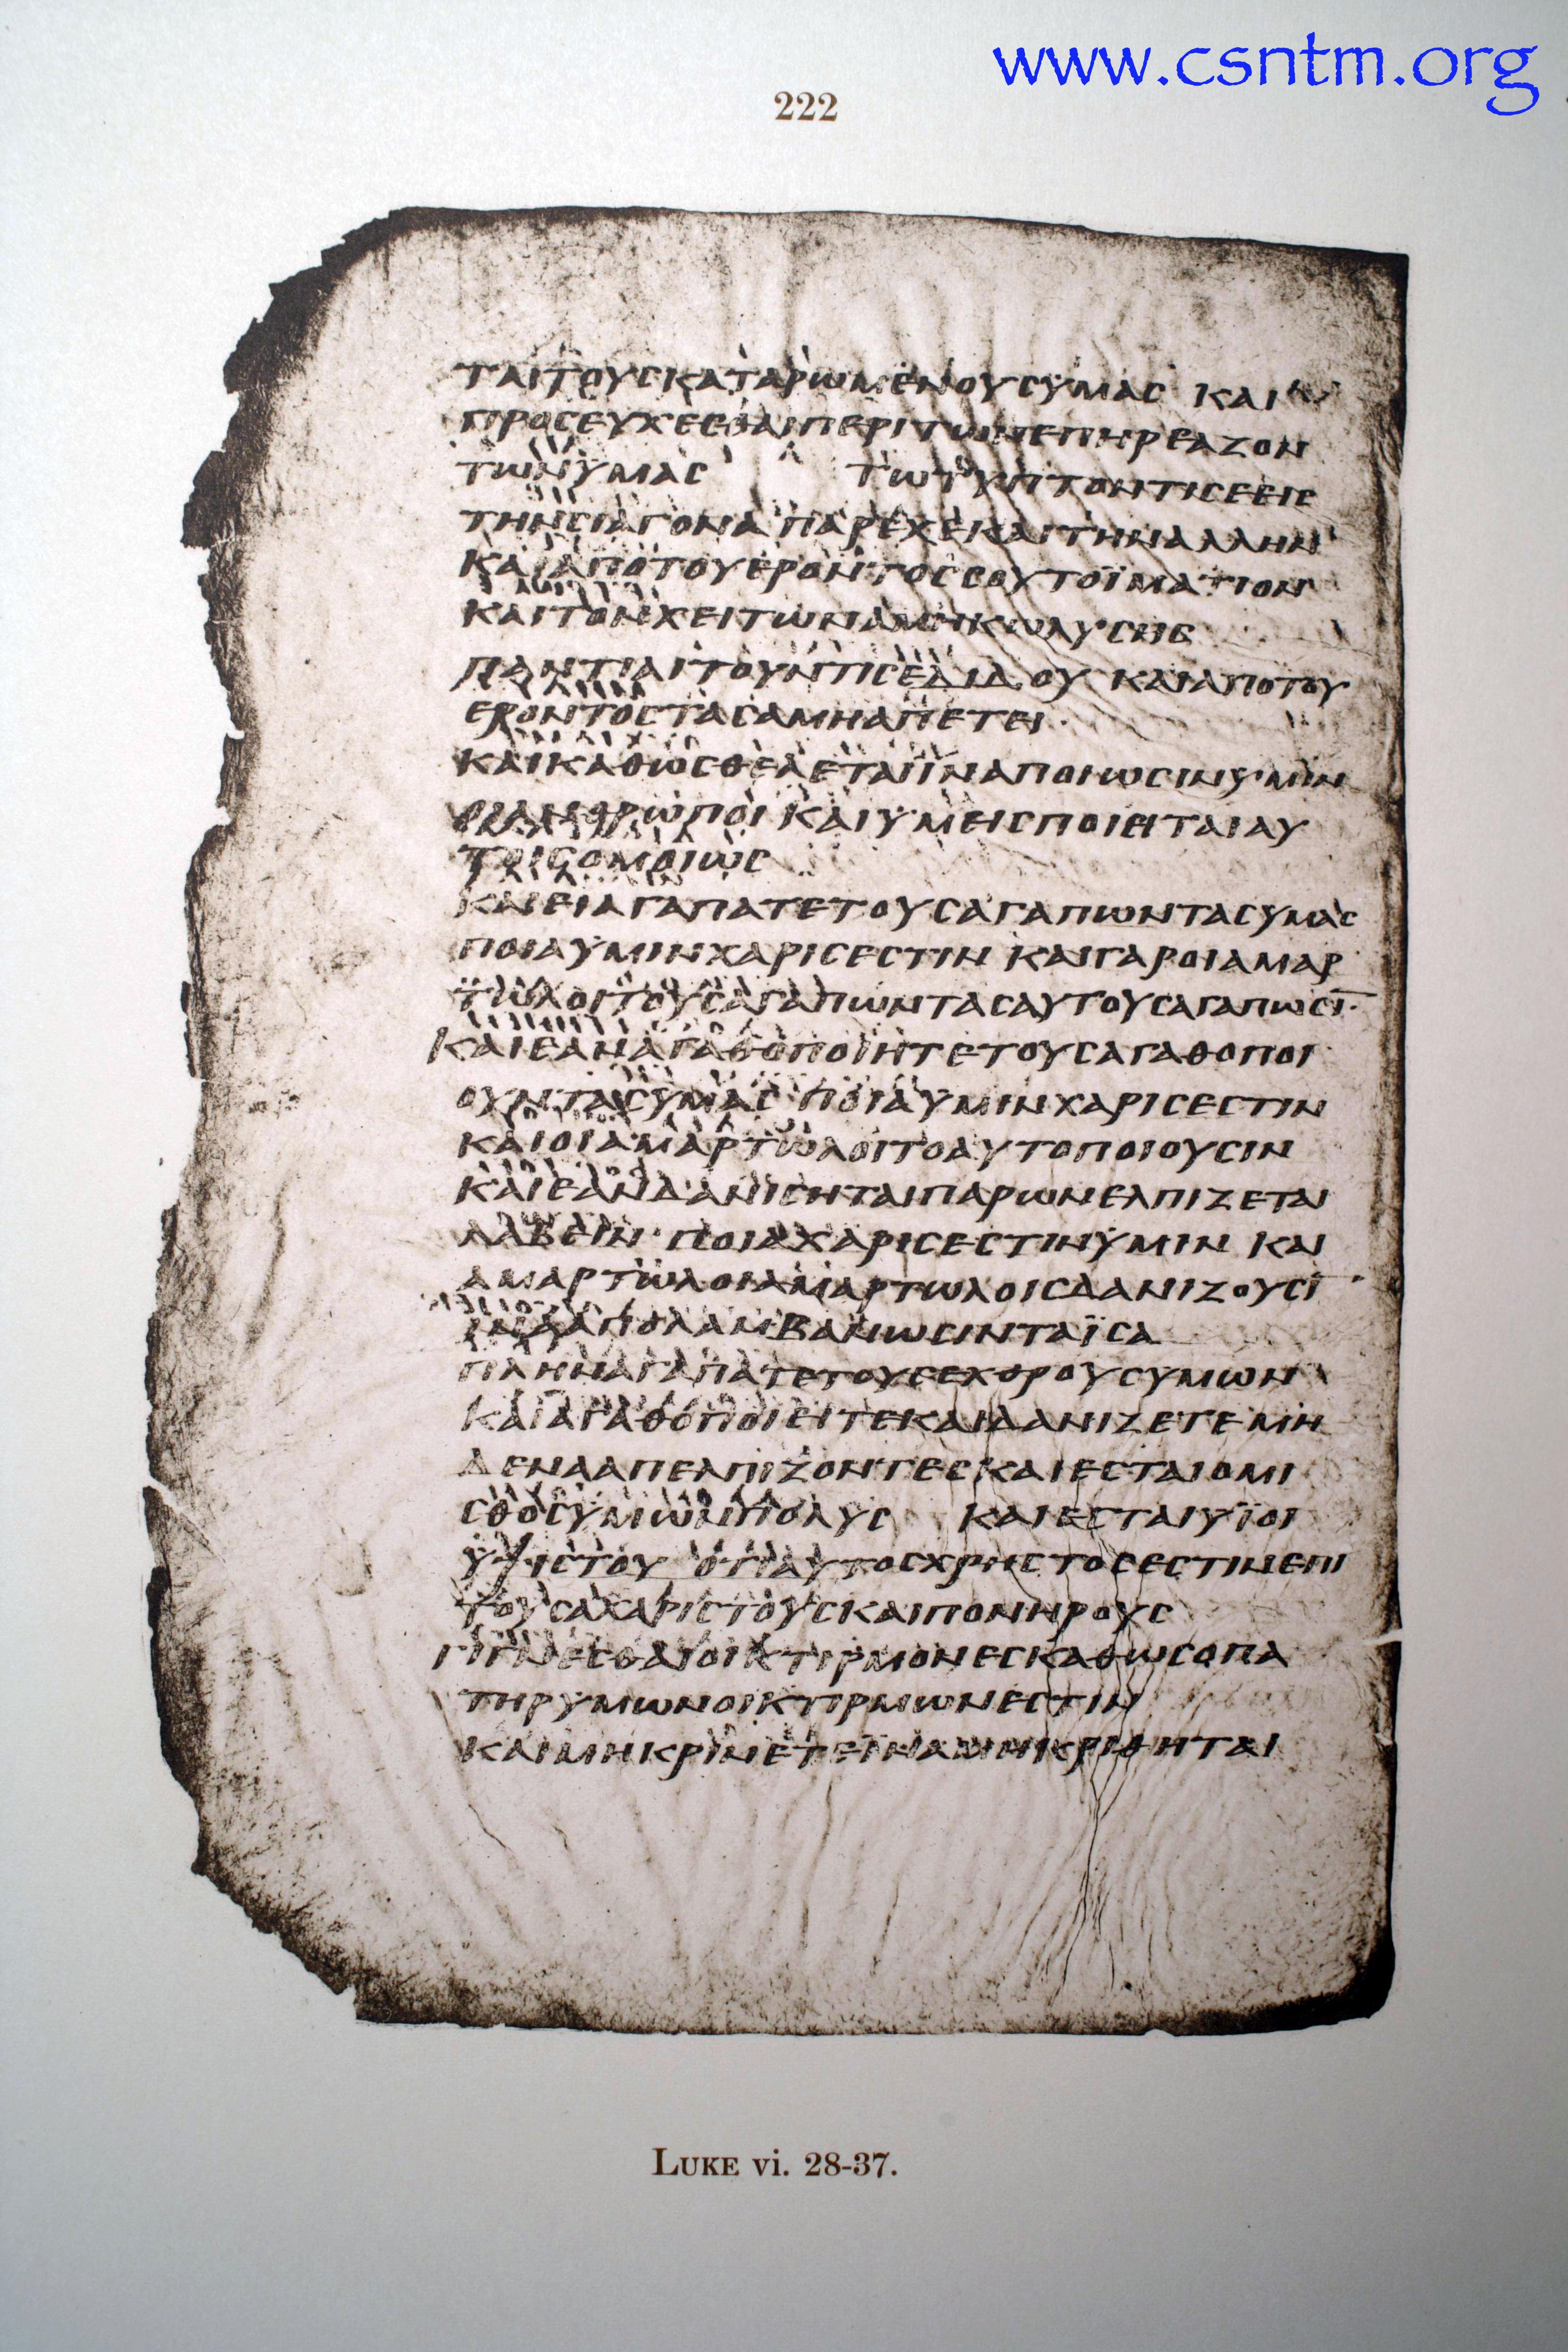 www.csntm.org
222
ΤΑΙΤΟΥϹΚΑΤΑΡΩΜΕΝΟΥϹΥΜΑϹ ΚΑΙ
ΠΡΟϹΕΥΧΕϹΘΑΙΠΕΡΙΤΩΝΕΠΗΡΕΑΖΟΝ
ΤΩΝΫΜΑϹ ΤΩΤΥΠΤΟΝΤΙϹΕΕΙϹ
ΤΗΝϹΙΑΓΟΝΑ ΠΑΡΕΧΕΚΑΙΤΗΝΑΛΛΗΝ
ΚΑΙΑΠΟΤΟΥΕΡΟΝΤΟϹϹΟΥΤΟΪΜΑΤΙΟΝ
ΚΑΙΤΟΝΧΕΙΤΩΝΑΜΗΚΩΛΥϹΗϹ
ΠΑΝΤΙΑΙΤΟΥΝΤΙϹΕΔΙΔΟΥ ΚΑΙΑΠΟΤΟΥ
ΕΡΟΝΤΟϹΤΑϹΑΜΗΑΠΕΤΕΙ·
ΚΑΙΚΑΘΩϹΘΕΛΕΤΑΙΪΝΑΠΟΙΩϹΙΝΥΜΙΝ
ΟΙΑΝΘΡΩΠΟΙ ΚΑΙΥΜΕΙϹΠΟΙΕΙΤΑΙΑΥ
ΤΟΙϹΟΜΟΙΩϹ
ΚΑΙΕΙΑΓΑΠΑΤΕΤΟΥϹΑΓΑΠΩΝΤΑϹΥΜΑϹ
ΠΟΙΑΥΜΙΝΧΑΡΙϹΕϹΤΙΝ ΚΑΙΓΑΡΟΙΑΜΑΡ
ΤΩΛΟΙΤΟΥϹΑΓΑΠΩΝΤΑϹΑΥΤΟΥϹΑΓΑΠΩϹΙ̅·
ΚΑΙΕΑΝΑΓΑΘΟΠΟΙΗΤΕΤΟΥϹΑΓΑΘΟΠΟΙ
ΟΥΝΤΑϹΥΜΑϹ ΠΟΙΑΥΜΙΝΧΑΡΙϹΕϹΤΙΝ
ΚΑΙΟΙΑΜΑΡΤΩΛΟΙΤΟΑΥΤΟΠΟΙΟΥϹΙΝ
ΚΑΙΕΑΝΔΑΝΙϹΗΤΑΙΠΑΡΩΝΕΛΠΙΖΕΤΑΙ
ΛΑΒΕΙΝ· ΠΟΙΑΧΑΡΙϹΕϹΤΙΝΥΜΙΝ ΚΑΙ
ΑΜΑΡΤΩΛΟΙΑΜΑΡΤΩΛΟΙϹΔΑΝΙΖΟΥϹΙ̅
ΙΝΑΑΠΟΛΑΜΒΑΝΩϹΙΝΤΑΪϹΑ
ΠΛΗΝΑΓΑΠΑΤΕΤΟΥϹΕΧΘΡΟΥϹΥΜΩΝ
ΚΑΙΑΓΑΘΟΠΟΙΕΙΤΕΚΑΙΔΑΝΙΖΕΤΕΜΗ
ΔΕΝΑΑΠΕΛΠΙΖΟΝΤΕϹΚΑΙΕϹΤΑΙΟΜΙ
ϹΘΟϹΥΜΩΝΠΟΛΥϹ ΚΑΙΕϹΤΑΙΥΪΟΙ
ΥΨΙϹΤΟΥ ΟΤΙΑΥΤΟϹΧΡΗϹΤΟϹΕϹΤΙΝΕΠΙ
ΤΟΥϹΑΧΑΡΙϹΤΟΥϹΚΑΙΠΟΝΗΡΟΥϹ
ΓΙΓΝΕϹΘΑΙΟΙΚΤΙΡΜΟΝΕϹΚΑΘΩϹΟΠΑ
ΤΗΡΥΜΩΝΟΙΚΤΙΡΜΩΝΕϹΤΙΝ
ΚΑΙΜΗΚΡΙΝΕΤΕΪΝΑΜΗΚΡΙΘΗΤΑΙ
LUKE vi. 28-37.